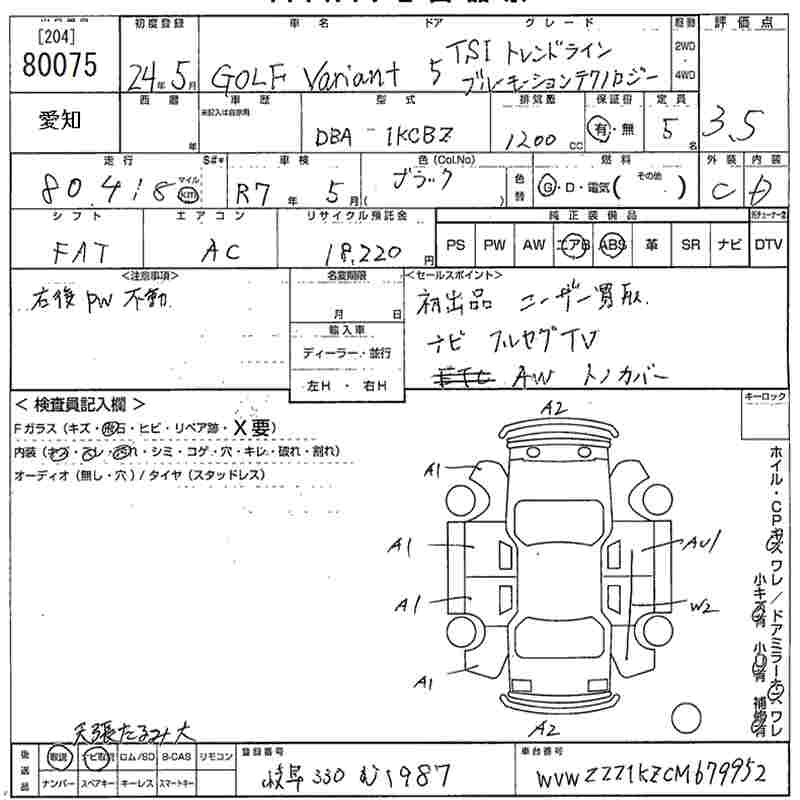 [204]
80075
初度登録 車名 ドア グレード 駆動 評価点
24年5月 GOLF Variant 5 TSI トレンドライン
ブルーモーションテクノロジー
2WD
4WD
愛知
西暦 車歴 型式 排気量 保証書 定員
未記入は自家用
年 DBA-1KCBZ 1200cc 有・無 5名 3.5
走行 S#* 車検 色(Col.No) 燃料 外装 内装
80,418 マイル km R7年5月 ブラック 色替 G・D・電気(その他) C D
シフト エアコン リサイクル預託金 純正装備品
FAT AC 18,220円 PS PW AW エアB ABS 革 SR ナビ DTV
<注意事項> 名変期限 <セールスポイント>
右後 PW 不動.
月 日
輸入車
ディーラー・並行
左H・右H
初出品 ユーザー買取.
ナビ フルセグTV
AW トノカバー
<検査員記入欄>
キーロック
Fガラス(キズ・飛石・ヒビ・リペア跡・X要)
内装(キズ・スレ・汚れ・シミ・コゲ・穴・キレ・破れ・割れ)
オーディオ(無し・穴)/タイヤ(スタッドレス)
A2
A1
A1 AU1
A1 W2
A1
A2
ホイル・CPキズ ワレ/ドアミラーキズ ワレ
小キズ有 小凹有 補修有
天張たるみ大
後送品
取説 ナビ取説 ロム/SD B-CAS リモコン
ナンバー スペアキー キーレス スマートキー
登録番号
岐阜 330 む 1987
車台番号
WVWZZZ1KZCM679952